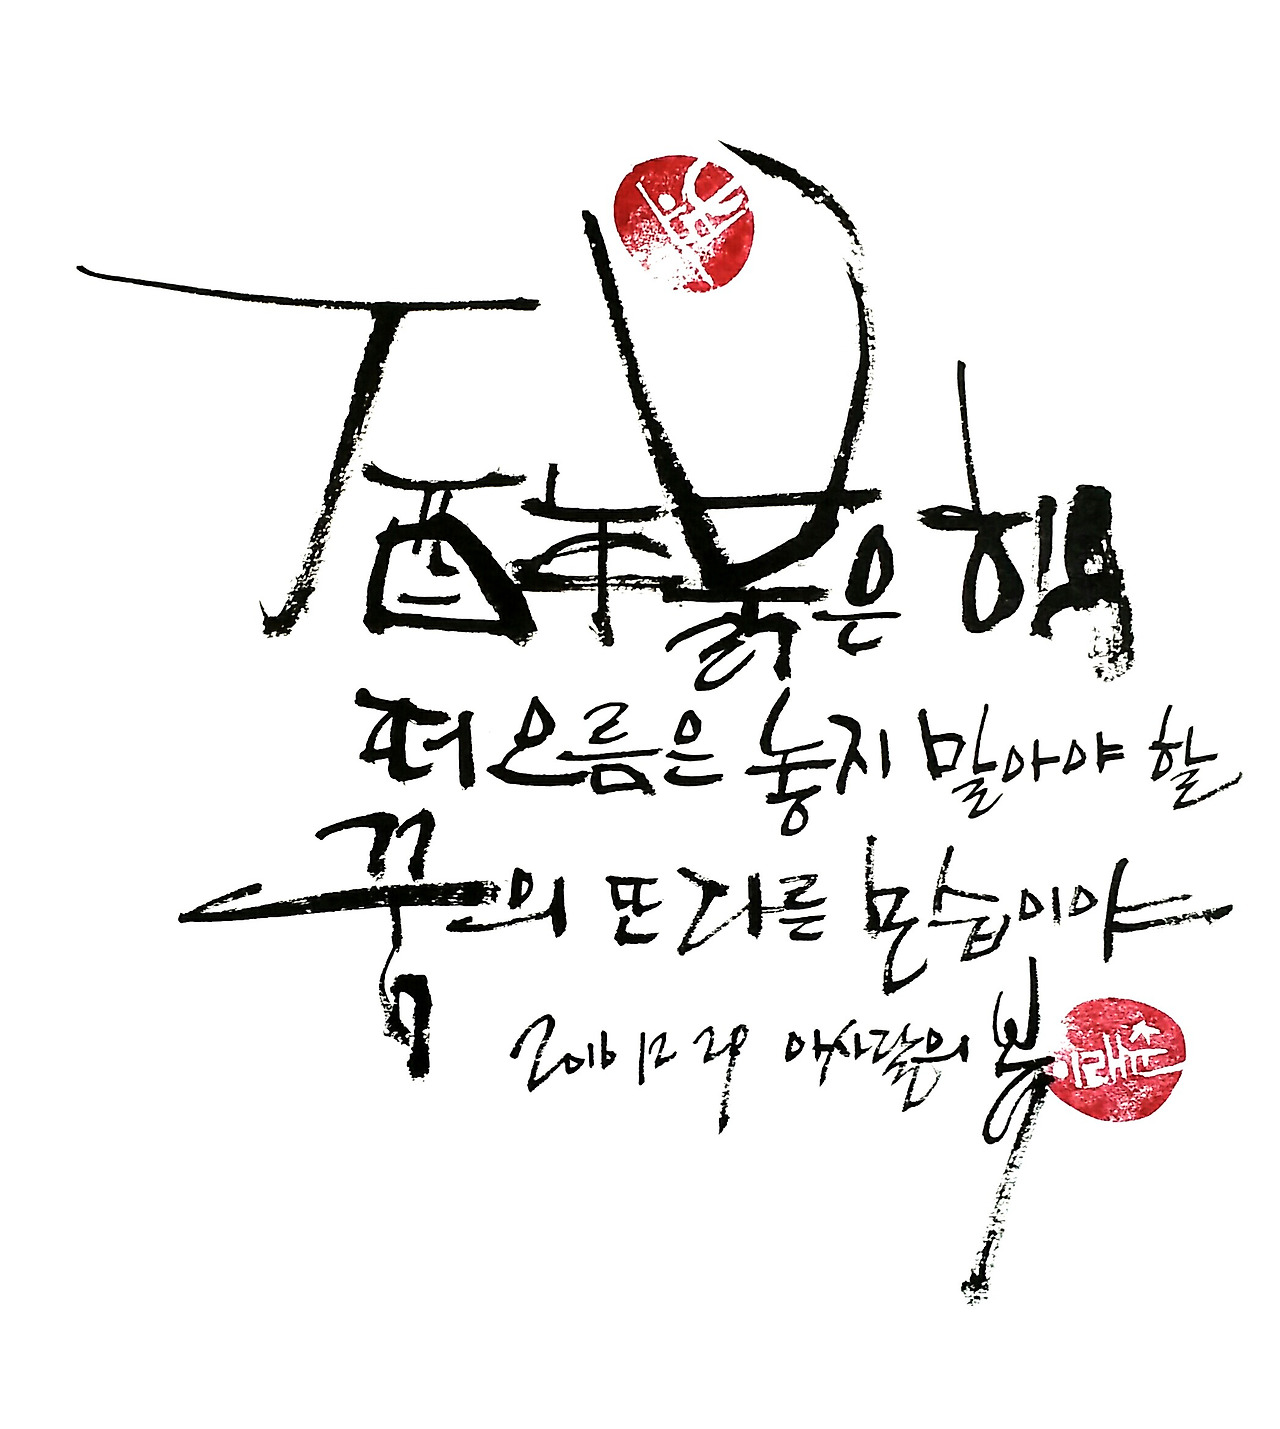 丁酉年 붉은 해
떠오름은 놓지 말아야 할
꿈의 또 다른 모습이야
2016 12 29
이래춘